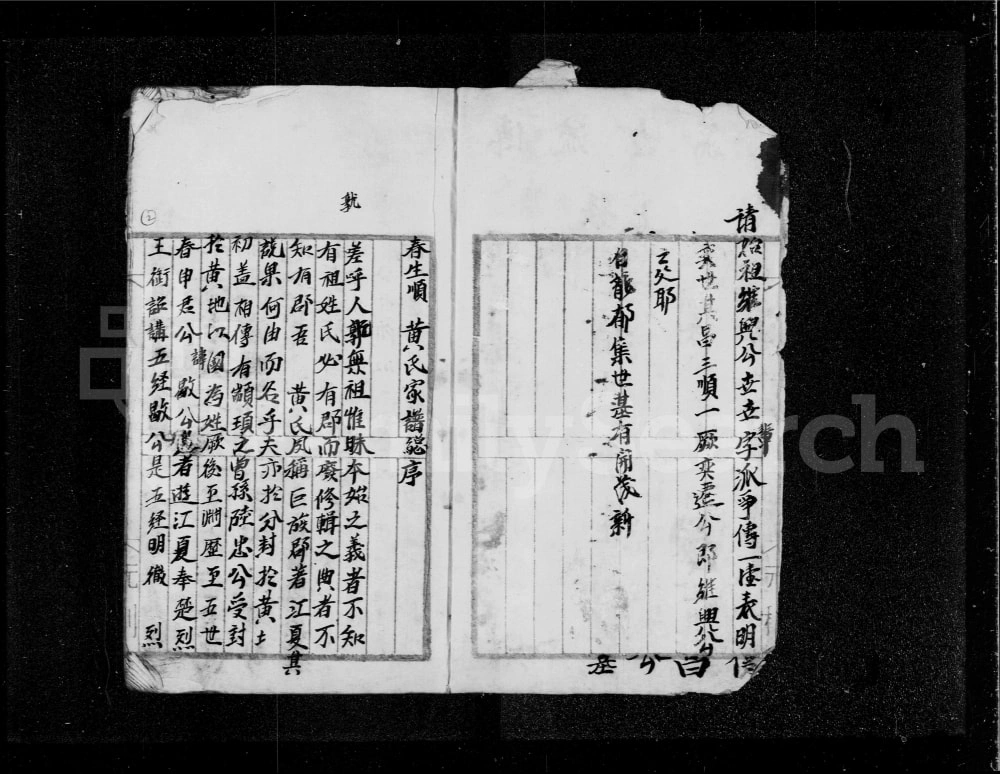 請始祖維興公立字輩派爭傳一陸表明
世其昌三順一厥奕遷公即維興公
云爻耶
龍郁集世甚有常茂新
春生順 黃氏家譜總序
孰
差乎人孰無祖惟昧本始之義者不知
有祖姓氏必有郡而廢修輯之典者不
知有郡吾 黃氏夙稱巨族郡著江夏其
說果何由而名乎夫亦於分封於黃土
初蓋相傳有顓頊之曾孫陸忠公受封
於黃地以國為姓厥後至淵歷至五世
春申君公諱歇公 者遊江夏奉楚烈
王衔詔講五经歇公是五经明徵 烈
2
FamilySearch